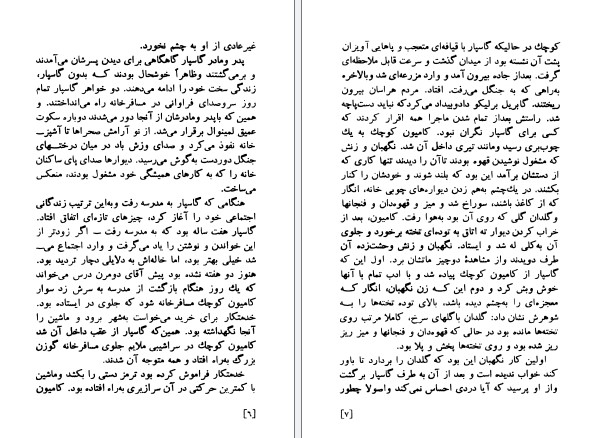 غیرعادی از او به چشم نخورد.
پدر ومادر گاسپار گاهگاهی برای دیدن پسرشان می‌آمدند
و برمی‌گشتند وظاهراً خوشحال بودند که بدون گاسپار،
زندگی سخت خود را ادامه می‌دهند. دو خواهر گاسپار تمام
روز سروصدای فراوانی در مسافرخانه راه می‌انداختند. و
همین که باپدر ومادرشان از آنجا دور می‌شدند دوباره سکوت
عمیق لمینوال برقرار می‌شد. از نو آرامش صحراها تا آشپز–
خانه نفوذ می‌کرد و صدای وزش باد در میان درختهای
جنگل دوردست به‌گوش می‌رسید. دیوارها صدای پای ساکنان
خانه را که به کارهای همیشگی خود مشغول بودند، منعکس
می‌ساخت.
هنگامی که گاسپار به مدرسه رفت وبه‌این ترتیب زندگانی
اجتماعی خود را آغاز کرد، چیزهای تازه‌ای اتفاق افتاد.
گاسپار هفت ساله بود که به مدرسه رفت – اگر زودتر از
این خواندن و نوشتن را یاد می‌گرفت و وارد اجتماع می–
شد خیلی بهتر بود، اما خاله‌اش به‌دلایلی دچار تردید بود.
هنوز دو هفته نشده بود پیش آقای دومرن درس می‌خواند
که یک روز هنگام بازگشت از مدرسه به سرش زد سوار
کامیون کوچک مسافرخانه شود که جلوی در ایستاده بود.
خدمتکار برای خرید می‌خواست به‌شهر برود و ماشین را
آنجا نگهداشته بود. همین‌که گاسپار از عقب داخل آن شد
کامیون کوچک در سراشیبی ملایم جلوی مسافرخانه گوزن
بزرگ به‌راه افتاد و همه متوجه آن شدند.
خدمتکار فراموش کرده بود ترمز دستی را بکشد وماشین
با کمترین حرکتی در آن سرازیری به‌راه افتاده بود. کامیون
[۶]
کوچک در حالیکه گاسپار با قیافه‌ای متعجب و پاهایی آویزان
پشت آن نشسته بود از میدان گذشت و سرعت قابل ملاحظه‌ای
گرفت. بعداز جاده بیرون آمد و وارد مزرعه‌ای شد وبالاخره
به‌راهی که به جنگل می‌رفت، افتاد. مردم هراسان بیرون
ریختند. گابریل برلیکو دادوبیداد می‌کردکه نباید دست‌پاچه
شد. راستش بعداز تمام شدن ماجرا همه اقرار کردند که
کسی برای گاسپار نگران نبود. کامیون کوچک به یک
چوب‌بری رسید ومانند تیری داخل آن شد. نگهبان و زنش
که مشغول نوشیدن قهوه بودند تاآن را دیدند تنها کاری که
از دستشان برآمد این بود که بلند شوند و خودشان را کنار
بکشند. در یک‌چشم به‌هم زدن دیواره‌های چوبی خانه، انگار
که از کاغذ باشند، سوراخ شد و میز و قهوه‌دان و فنجانها
وگلدان گلی که روی آن بود به‌هوا رفت. کامیون، بعد از
خراب کردن دیوار ته اتاق به توده‌ای تخته برخورد و جلوی
آن به‌کلی له شد و ایستاد. نگهبان و زنش وحشت‌زده آن
طرف دویدند واز مشاهدهٔ دوچیز ماتشان برد. اول این که
گاسپار از کامیون کوچک پیاده شد و با ادب تمام با آنها
خوش وبش کرد و دوم این که زن نگهبان، انگار که
معجزه‌ای را به‌چشم دیده باشد، بالای توده تخته‌ها را به
شوهرش نشان داد: گلدان باگلهای سرخ، کاملا مرتب روی
تخته‌ها مانده بود در حالی که قهوه‌دان و فنجانها و میز ریز
ریز شده بود و روی تخته‌ها پخش و پلا بود.
اولین کار نگهبان این بود که گلدان را بردارد تا باور
کند خواب ندیده است و بعد از آن به طرف گاسپار برگشت
واز او پرسید که آیا دردی احساس نمی‌کند واصولا چطور
[۷]